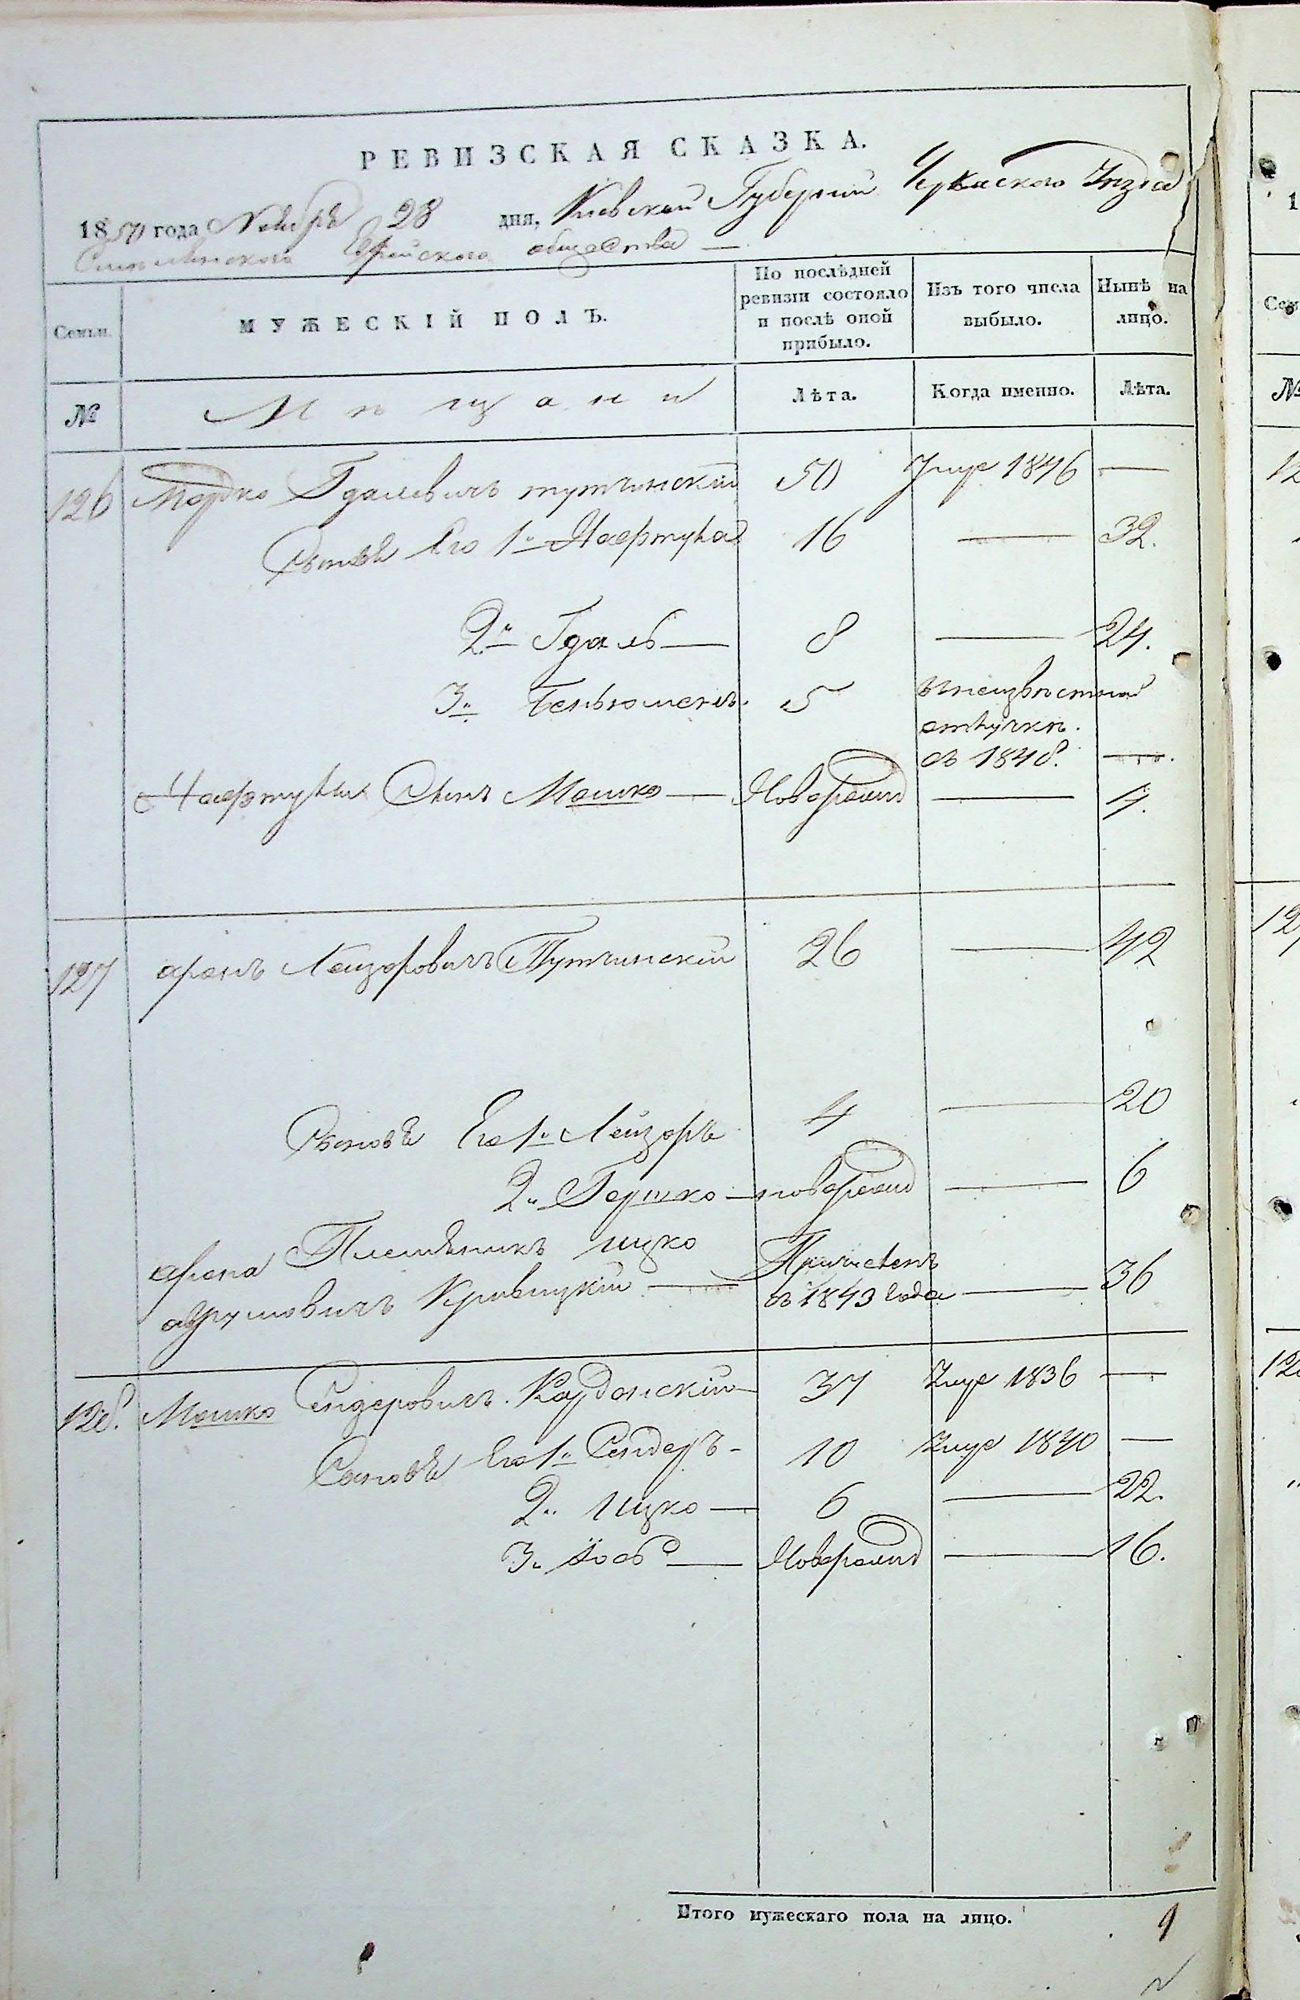 РЕВИЗСКАЯ СКАЗКА.
1850 года Ноября 28 дня, Киевской Губернии Черкаского Уезда
Смелянского Еврейского общества —
Семьи.
МУЖЕСКІЙ ПОЛЪ.
По послѣдней ревизіи состояло и послѣ оной прибыло.
Изъ того числа выбыло.
Нынѣ на лицо.
№
Мѣщани
Лѣта.
Когда именно.
Лѣта.
126 Мордко Гдалевичъ тутчинскій 50 Умре 1846 —
Сыновѣ Его 1й 16 — 32.
2й Гдаль — 8 — 24.
3й Беньюменъ. 5 в неизвѣстной
отлучкѣ.
съ 1848. —
Сынъ Мошко — Новорожд — 4.
127 аронъ Лейзоровичъ Тутчинскій 26 — 42
Сыновѣ Его 1й Лейзоръ 4 — 20
2й Гершко — новорожд — 6
арона Племѣникъ Ицко Причислен
аврумовичъ Кривицкій — въ 1843 года — 36
128. Мошко Сендеровичъ Кардонскій 37 Умре 1836 —
Сыновѣ Его 1й Сендеръ - 10 Умре 1840 —
2й Ицко — 6 — 22.
3й Іось — Новорожд — 16.
Итого мужескаго пола на лицо. 9